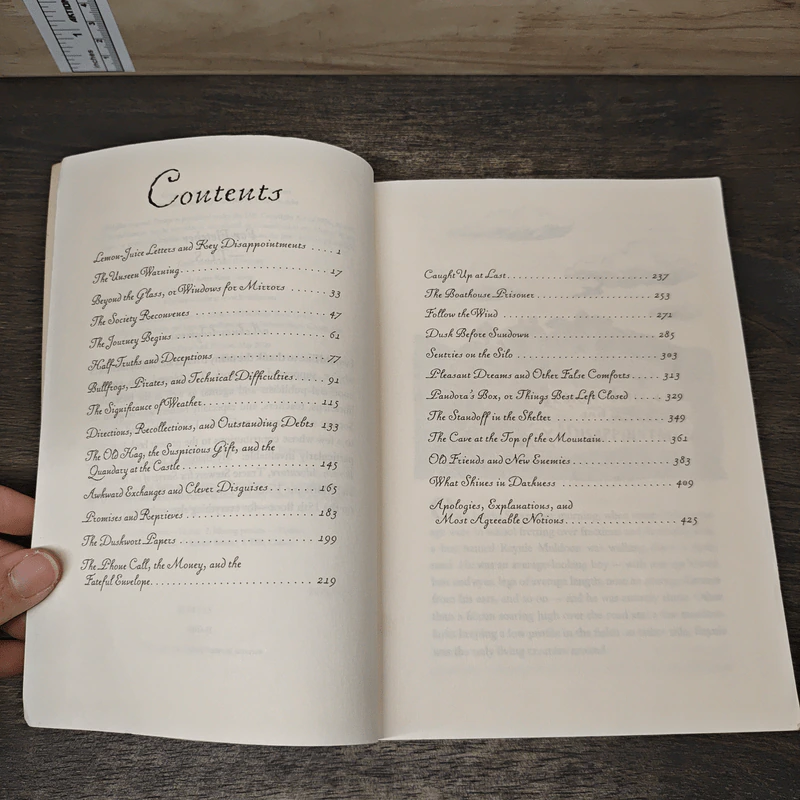 Contents
Lemon-Juice Letters and Key Disappointments ..... 1
The Unseen Warning .......................... 17
Beyond the Glass, or Windows for Mirrors ........ 33
The Society Reconvenes ........................ 47
The Journey Begins .......................... 61
Half-Truths and Deceptions .................... 77
Bullfrogs, Pirates, and Technical Difficulties ..... 91
The Significance of Weather .................... 115
Directions, Recollections, and Outstanding Debts 133
The Old Hag, the Suspicious Gift, and the
Quandary at the Castle ..................... 145
Awkward Exchanges and Clever Disguises ........ 165
Promises and Reprieves ...................... 183
The Duskwort Papers ........................ 199
The Phone Call, the Money, and the
Fateful Envelope ........................... 219
Caught Up at Last ......................... 237
The Boathouse Prisoner ..................... 253
Follow the Wind ........................... 271
Dusk Before Sundown ...................... 285
Sentries on the Silo ......................... 303
Pleasant Dreams and Other False Comforts ..... 313
Pandora's Box, or Things Best Left Closed ..... 329
The Standoff in the Shelter .................... 349
The Cave at the Top of the Mountain ............ 361
Old Friends and New Enemies ................. 383
What Shines in Darkness ..................... 409
Apologies, Explanations, and
Most Agreeable Notions ..................... 425
inches 1